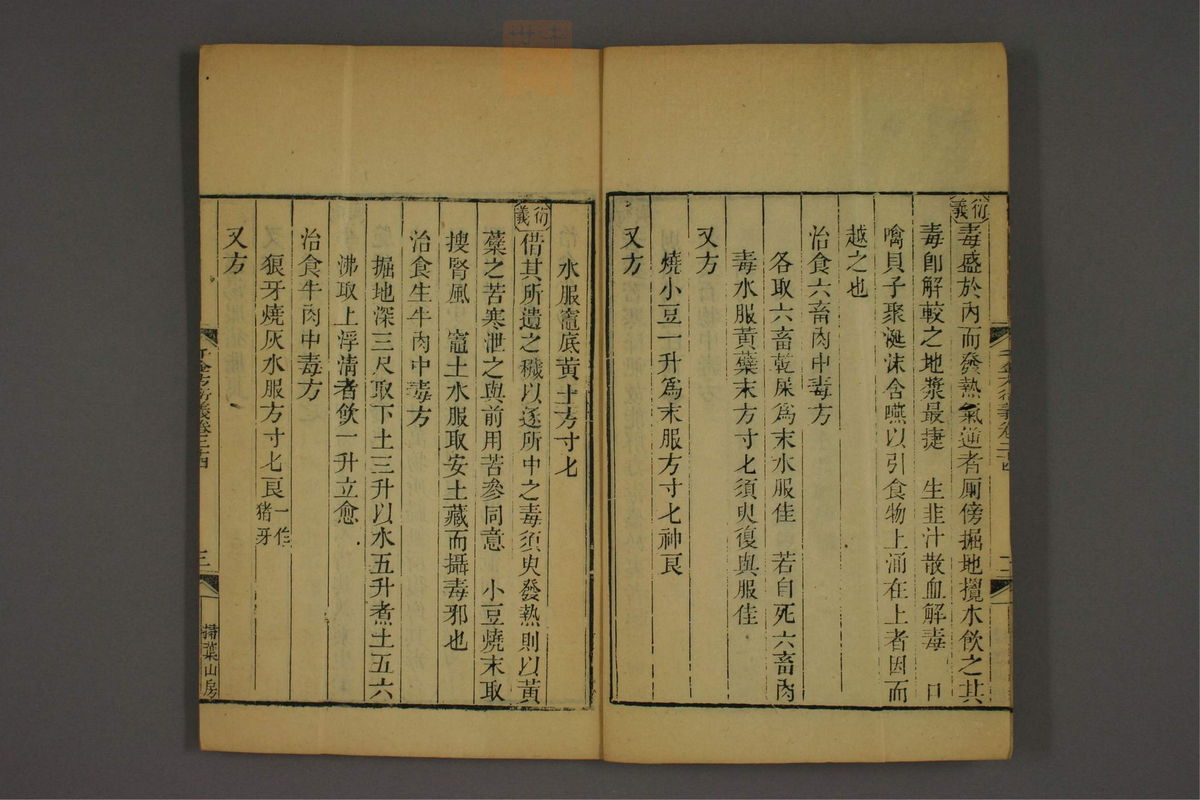 衍義毒盛於內而發熱氣逆者厠傍掘地攪水飲之其
毒卽解較之地漿最捷　生韭汁散血解毒　口
噙貝子聚涎沫含嚥以引食物上涌在上者因而
越之也
治食六畜肉中毒方
各取六畜乾屎爲末水服佳　若自死六畜肉
毒水服黃蘗末方寸匕須臾復與服佳
又方
燒小豆一升爲末服方寸匕神良
又方
千金方衍義卷二十四
二
水服竈底黃土方寸匕
衍義借其所遺之穢以逐所中之毒須臾發熱則以黃
蘗之苦寒泄之與前用苦參同意　小豆燒末取
搜腎風　竈土水服取安土藏而攝毒邪也
治食生牛肉中毒方
掘地深三尺取下土三升以水五升煮土五六
沸取上浮清者飲一升立愈
治食牛肉中毒方
狼牙燒灰水服方寸匕良一作猪牙
又方
千金方衍義卷二十四
三
掃葉山房